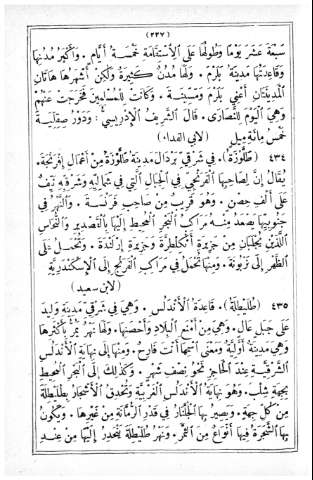 (٢٢٧)
سَبْعَةَ عَشَرَ يَوْمًا وَطُولُهَا عَلَى الْاِسْتِقَامَةِ خَمْسَةُ أَيَّامٍ . وَأَكْبَرُ مُدُنِهَا
وَقَاعِدَتُهَا مَدِينَةُ بَلَرْمَ . وَلَهَا مُدُنٌ كَثِيرَةٌ وَلٰكِنْ أَشْهَرُهَا هَاتَانِ
الْمَدِينَتَانِ أَعْنِي بَلَرْمَ وَمَسِينَةَ . وَكَانَتْ لِلْمُسْلِمِينَ فَخَرَجَتْ عَنْهُمْ
وَهِيَ الْيَوْمَ لِلنَّصَارَى . قَالَ الشَّرِيفُ الْإِدْرِيسِيُّ : وَدَوْرُ صِقِلِّيَةَ
خَمْسُ مِائَةِ مِيلٍ (لابي الفداء)
٤٣٤ (طُلُوزَةُ) . فِي شَرْقِيِّ بُرْدَالَ مَدِينَةُ طُلُوزَةَ مِنْ أَعْمَالِ إِفْرَنْجَةَ .
يُقَالُ إِنَّ لِصَاحِبِهَا الْفَرَنْجِيِّ فِي الْجِبَالِ الَّتِي فِي شَمَالِيِّهِ وَشَرْقِيِّهِ نَيِّفٌ
عَلَى أَلْفِ حِصْنٍ . وَهُوَ قَرِيبٌ مِنْ صَاحِبِ فَرَنْسَةَ . وَالنَّهْرُ فِي
جَنُوبِيِّهَا تَصْعَدُ مِنْهُ مَرَاكِبُ الْبَحْرِ الْمُحِيطِ إِلَيْهَا بِالْقَصْدِيرِ وَالنُّحَاسِ
الَّذَيْنِ يُجْلَبَانِ مِنْ جَزِيرَةِ أَنْكِلْطَرَةَ وَجَزِيرَةِ إِرْلَنْدَةَ . وَتُحْمَلُ عَلَى
الظَّهْرِ إِلَى نَرْبُونَةَ . وَمِنْهَا تُحْمَلُ فِي مَرَاكِبِ الْفَرَنْجِ إِلَى الْإِسْكَنْدَرِيَّةِ
(لابن سعيد)
٤٣٥ (طُلَيْطِلَةُ) . قَاعِدَةُ الْأَنْدَلُسِ . وَهِيَ فِي شَرْقِيِّ مَدِينَةِ وَلِيدَ
عَلَى جَبَلٍ عَالٍ . وَهِيَ مِنْ أَمْنَعِ الْبِلَادِ وَأَحْصَنِهَا . وَلَهَا نَهْرٌ يَمُرُّ بِأَكْثَرِهَا
وَهِيَ مَدِينَةٌ أَوَّلِيَّةٌ وَمَعْنَى اسْمِهَا أَنْتَ فَارِحٌ . وَمِنْهَا إِلَى نِهَايَةِ الْأَنْدَلُسِ
الشَّرْقِيَّةِ عِنْدَ الْحَاجِزِ نَحْوُ نِصْفِ شَهْرٍ . وَكَذٰلِكَ إِلَى الْبَحْرِ الْمُحِيطِ
بِجِهَةِ شِلْبَ . وَهُوَ نِهَايَةُ الْأَنْدَلُسِ الْغَرْبِيَّةُ وَتُحْدِقُ الْأَشْجَارُ بِطُلَيْطِلَةَ
مِنْ كُلِّ جِهَةٍ . وَيَصِيرُ بِهَا الْجُلَّنَارُ فِي قَدْرِ الرُّمَّانَةِ مِنْ غَيْرِهَا . وَيَكُونُ
بِهَا الشَّجَرَةُ فِيهَا أَنْوَاعٌ مِنَ الثَّمَرِ . وَنَهْرُ طُلَيْطِلَةَ يَنْحَدِرُ إِلَيْهَا مِنْ عِنْدِ